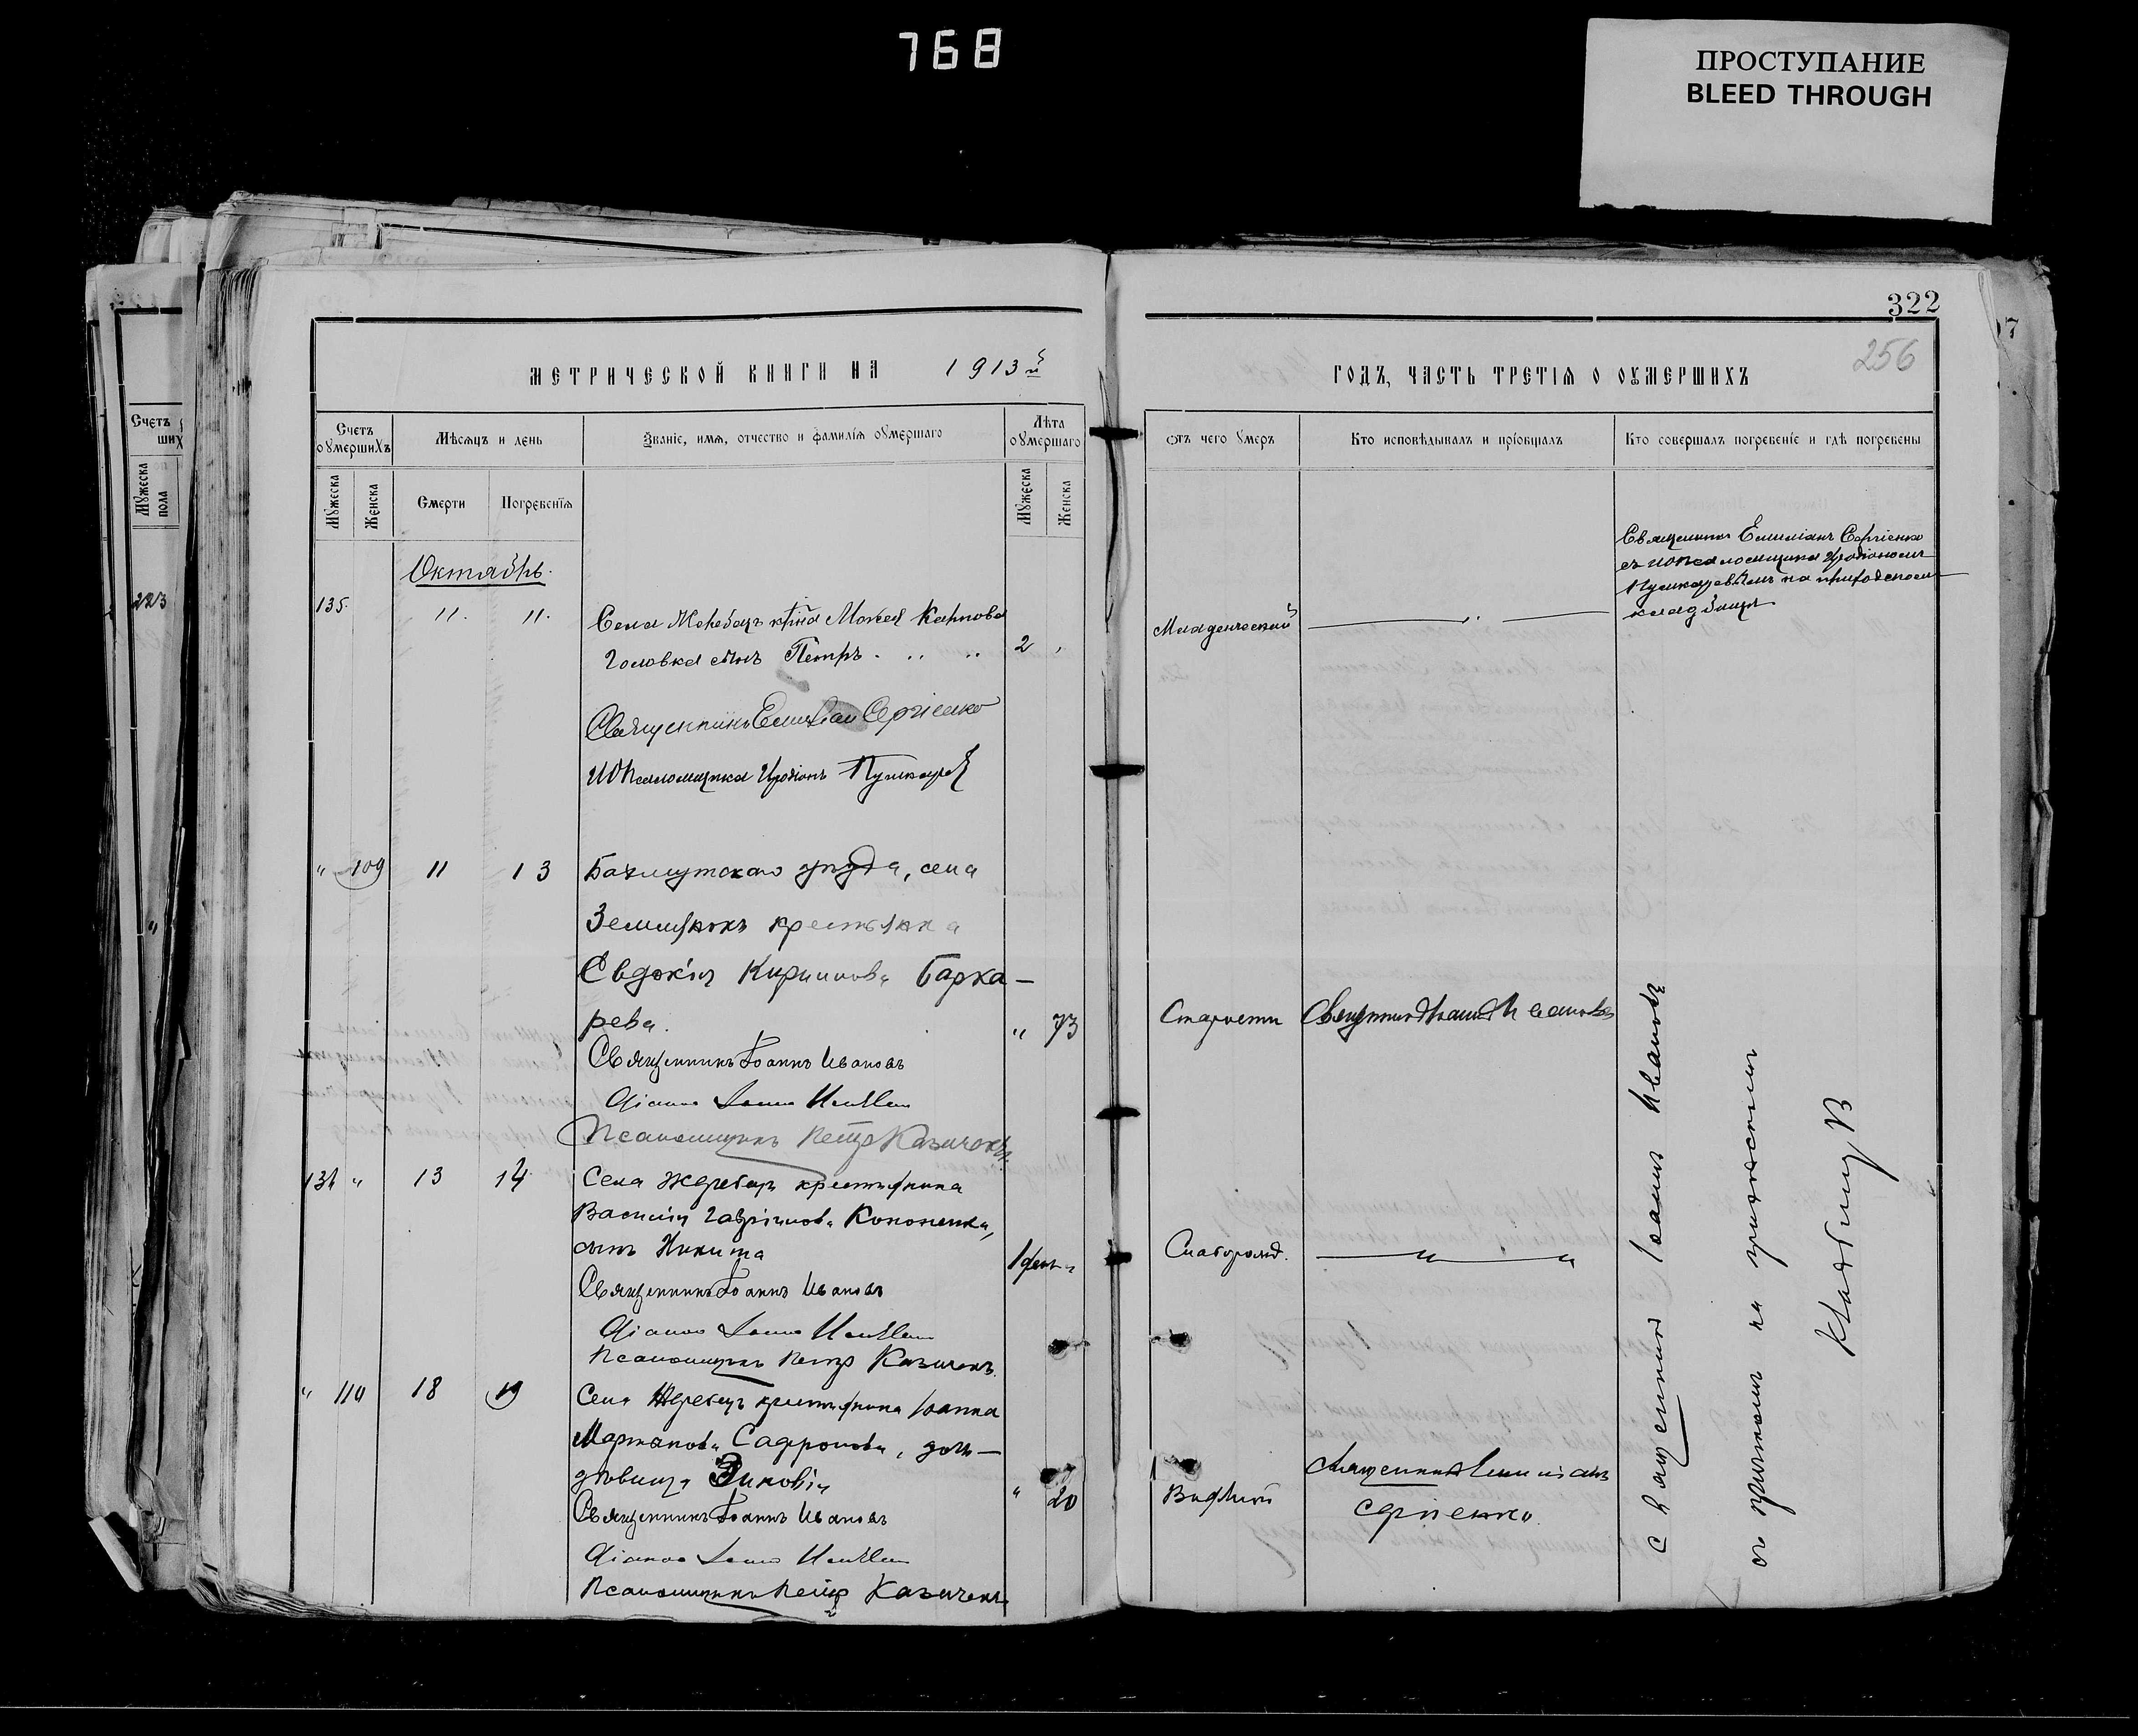 768
ПРОСТУПАНИЕ
BLEED THROUGH
322
256
МЕТРИЧЕСКОЙ КНИГИ НА 1913й
ГОДЪ, ЧАСТЬ ТРЕТІЯ О ОУМЕРШИХЪ
Счетъ оумершихъ
Мѣсяцъ и день
Званіе, имя, отчество и фамилія оумершаго
Лѣта оумершаго
Отъ чего умеръ
Кто исповѣдывалъ и пріобщалъ
Кто совершалъ погребеніе и гдѣ погребены
Мужеска
Женска
Смерти
Погребенія
Мужеска
Женска
Счетъ
ших
Мужеска пола
223
Октябрь.
135. 11. 11. Села Жеребецъ кр-на Моисея Карпова
Головка сынъ Петръ 2
Младенческой
Священникъ Емиліанъ Сергіенко
съ ИОПсаломщика Иродіономъ
Пушкаревымъ на приходскомъ
кладбищѣ
Священникъ Емиліан Сергіенко
ИОПсаломщика Иродіонъ Пушкарев
" 109 11 13 Бахмутскаго уѣзда, села
Землянокъ крестьянка
Евдокія Кириллова Барха-
рева. " 73
Старости Священникъ Іоаннъ Ивановъ
Священникъ Іоаннъ Ивановъ
Псаломщикъ Петръ Казачекъ
136 " 13 14 Села Жеребецъ крестьянина
Василія Гавріилова Кононенка,
сынъ Никита 1 день "
Слаборожд. " "
Священникъ Іоаннъ Ивановъ
Псаломщикъ Петръ Казачекъ.
" 110 18 19 Села Жеребецъ крестьянина Іоанна
Мартынова Сафронова, дочь-
дѣвица Зиновія " 20
Священникъ Емиліанъ
Сергіенко
Священникъ Іоаннъ Ивановъ
Псаломщикъ Петръ Казачекъ
Священникъ Іоаннъ Ивановъ
съ причтомъ на приходскомъ
кладбищѣ